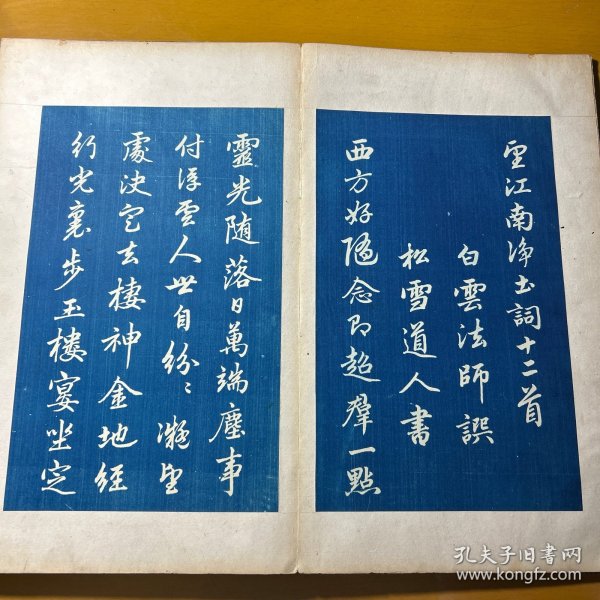 望江南净土詞十二首
白雲法師譔
松雪道人書
西方好隨念即超羣一點
靈光随落日萬端塵事
付浮雲人世自紛々凝望
處決定去棲神金地經
行光裏步玉樓宴坐定
孔夫子旧书网
www.kongfz.com